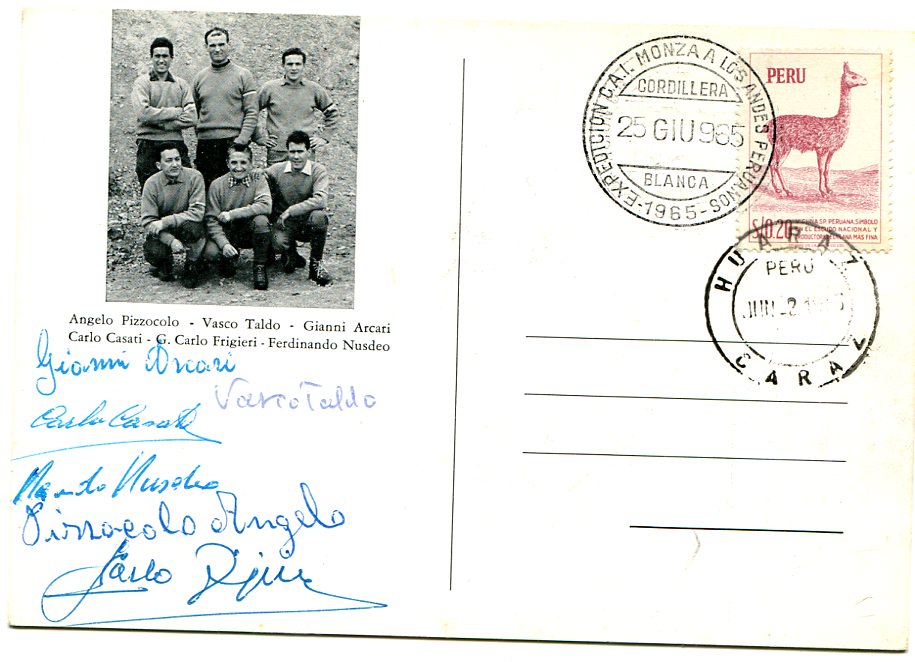 Angelo Pizzocolo - Vasco Taldo - Gianni Arcari
Carlo Casati - G. Carlo Frigieri - Ferdinando Nusdeo
Gianni Arcari
Vasco Taldo
Carlo Casati
Nando Nusdeo
Pizzocolo Angelo
Carlo
EXPEDICION C.A.I. MONZA A LOS ANDES PERUANOS
CORDILLERA
25 GIU 965
BLANCA
-1965-
PERU
S/0.20
VICUÑA S.P. PERUANA, SIMBOLO
EN EL ESCUDO NACIONAL Y
PRODUCTORA LANA MAS FINA
HUARAZ
PERU
JUN - 2
CARAZ